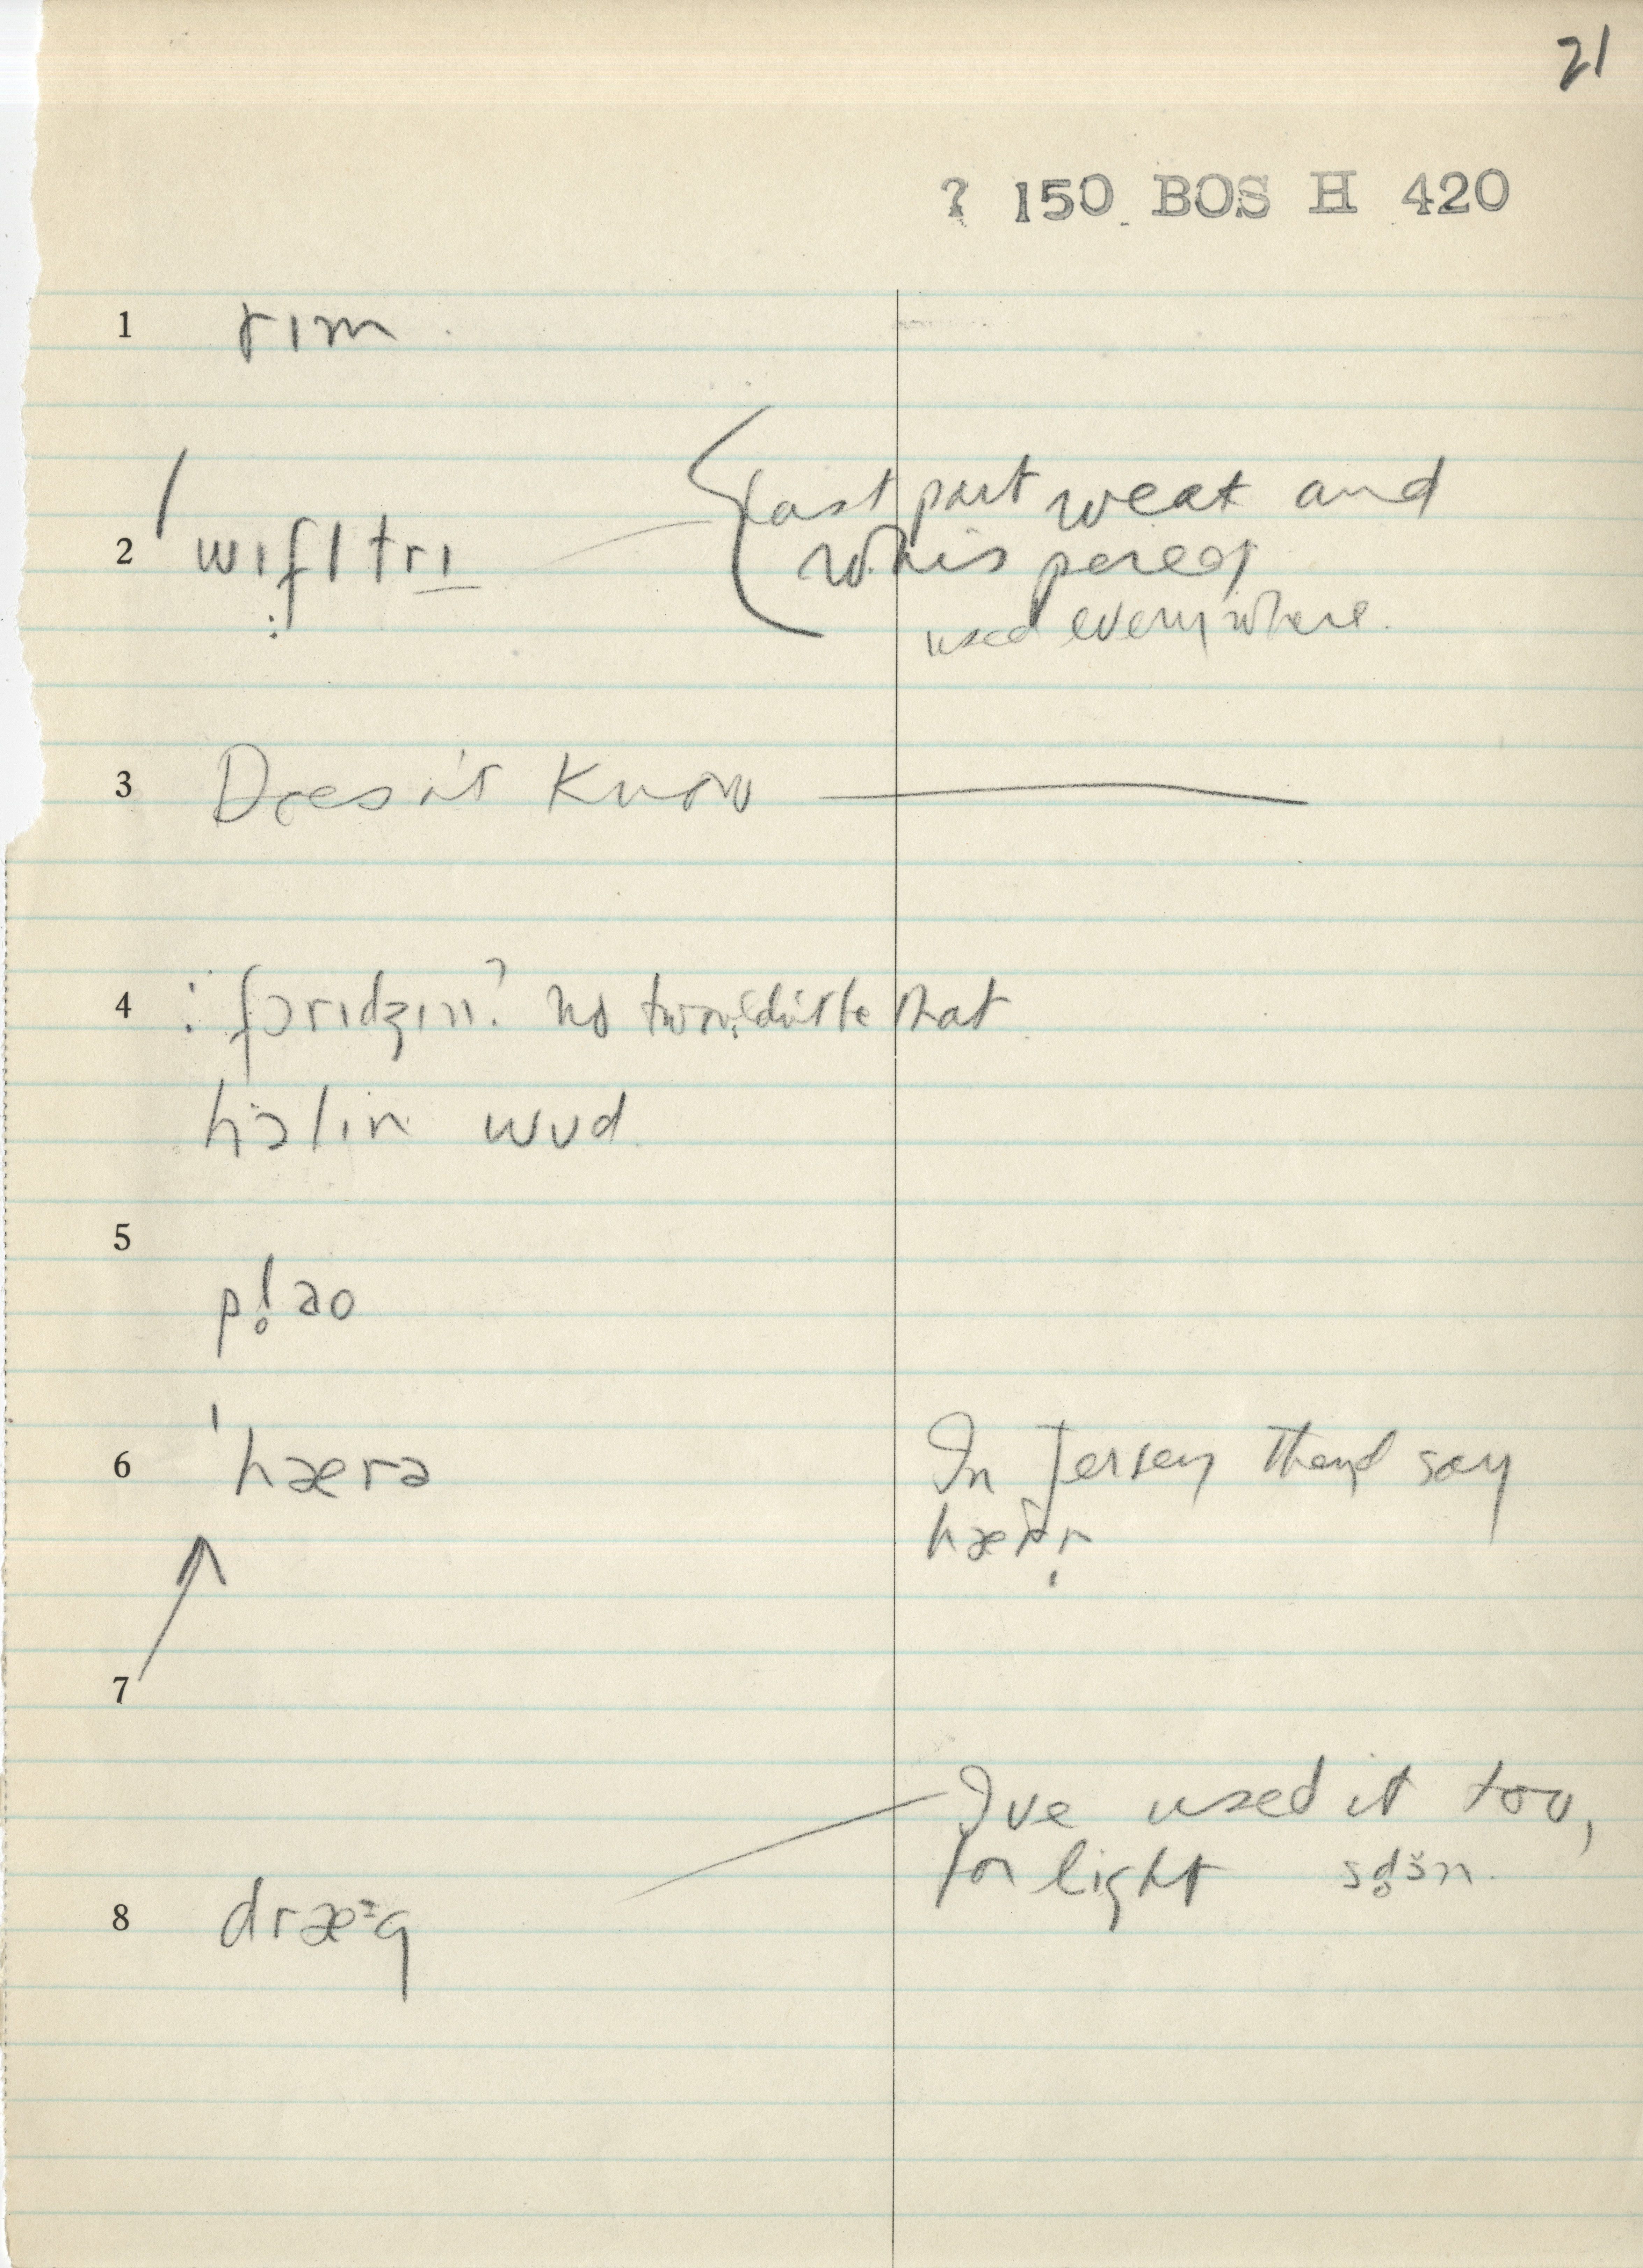 21
? 150 BOS H 420
1 rɪm
2 wɪflṭrɪ
last part weak and
whispered
used everywhere.
3 Doesn't Know
4 : fɔrɪdʒɪn? no twouldn't be that
hɔlin wud
5
pl̥ao
6 'hærə
In Jersey they'd say
7
I've used it too,
for light
8 dræ·g